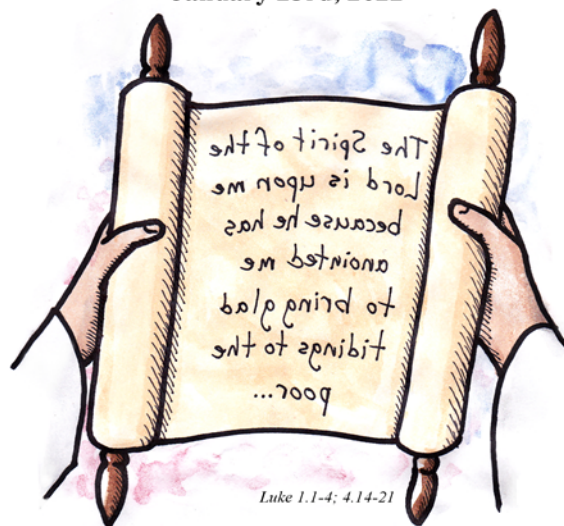 January 23rd, 2022
The Spirit of the
Lord is upon me
because he has
anointed me
to bring glad
tidings to the
poor...
Luke 1.1-4; 4.14-21